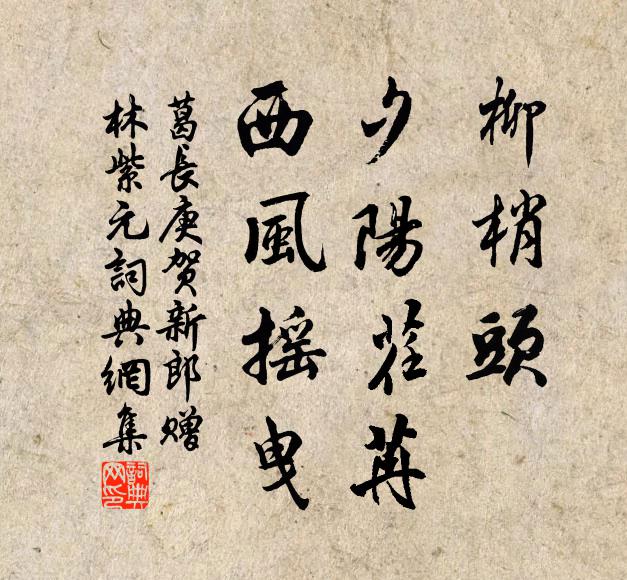 柳梢頭
夕陽荏苒
西風摇曳
葛長庚賀新郎贈
林紫元詞典網集
詞典网印